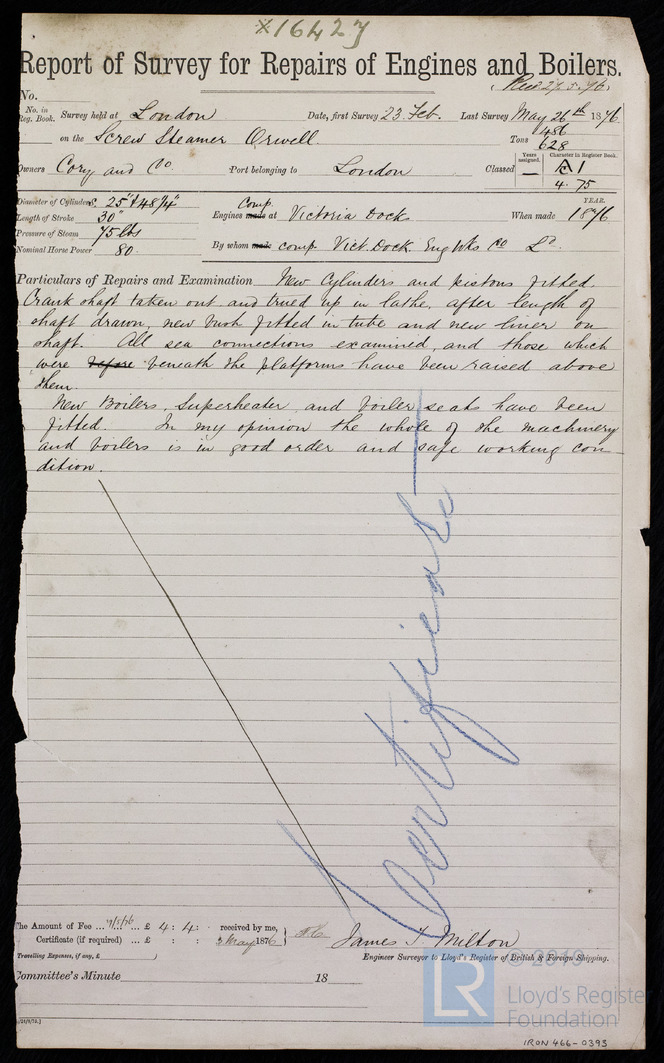 *16427
Report of Survey for Repairs of Engines and Boilers.
Recd 27.5.76.
No.
No. in Reg. Book. Survey held at London Date, first Survey 23 Feb. Last Survey May 26th 1876
on the Screw Steamer Orwell. Tons 486 628
Owners Cory and Co Port belonging to London Classed Years assigned. — Character in Register Book. A1 4.75
Diameter of Cylinders 25" & 48 1/4" Comp. YEAR.
Length of Stroke 30" Engines made at Victoria Dock When made 1876
Pressure of Steam 75 lbs
Nominal Horse Power 80. By whom made comp. Vict. Dock. Eng Wks Co Ld.
Particulars of Repairs and Examination New Cylinders and pistons fitted.
Crank shaft taken out and trued up in lathe, after length of
shaft drawn, new bush fitted in tube and new liner on
shaft. All sea connections examined, and those which
were before beneath the platforms have been raised above
them.
New Boilers, Superheater, and boiler seats have been
fitted. In my opinion the whole of the machinery
and boilers is in good order and safe working con-
dition.
Certificate
The Amount of Fee ... £ 4 : 4 : received by me,
Certificate (if required) ... £ : : May 1876
Travelling Expenses, if any, £ )
James T. Milton
Engineer Surveyor to Lloyd's Register of British & Foreign Shipping.
Committee's Minute 18
© 2019
LR
Lloyd's Register
Foundation
IRON 466-0393